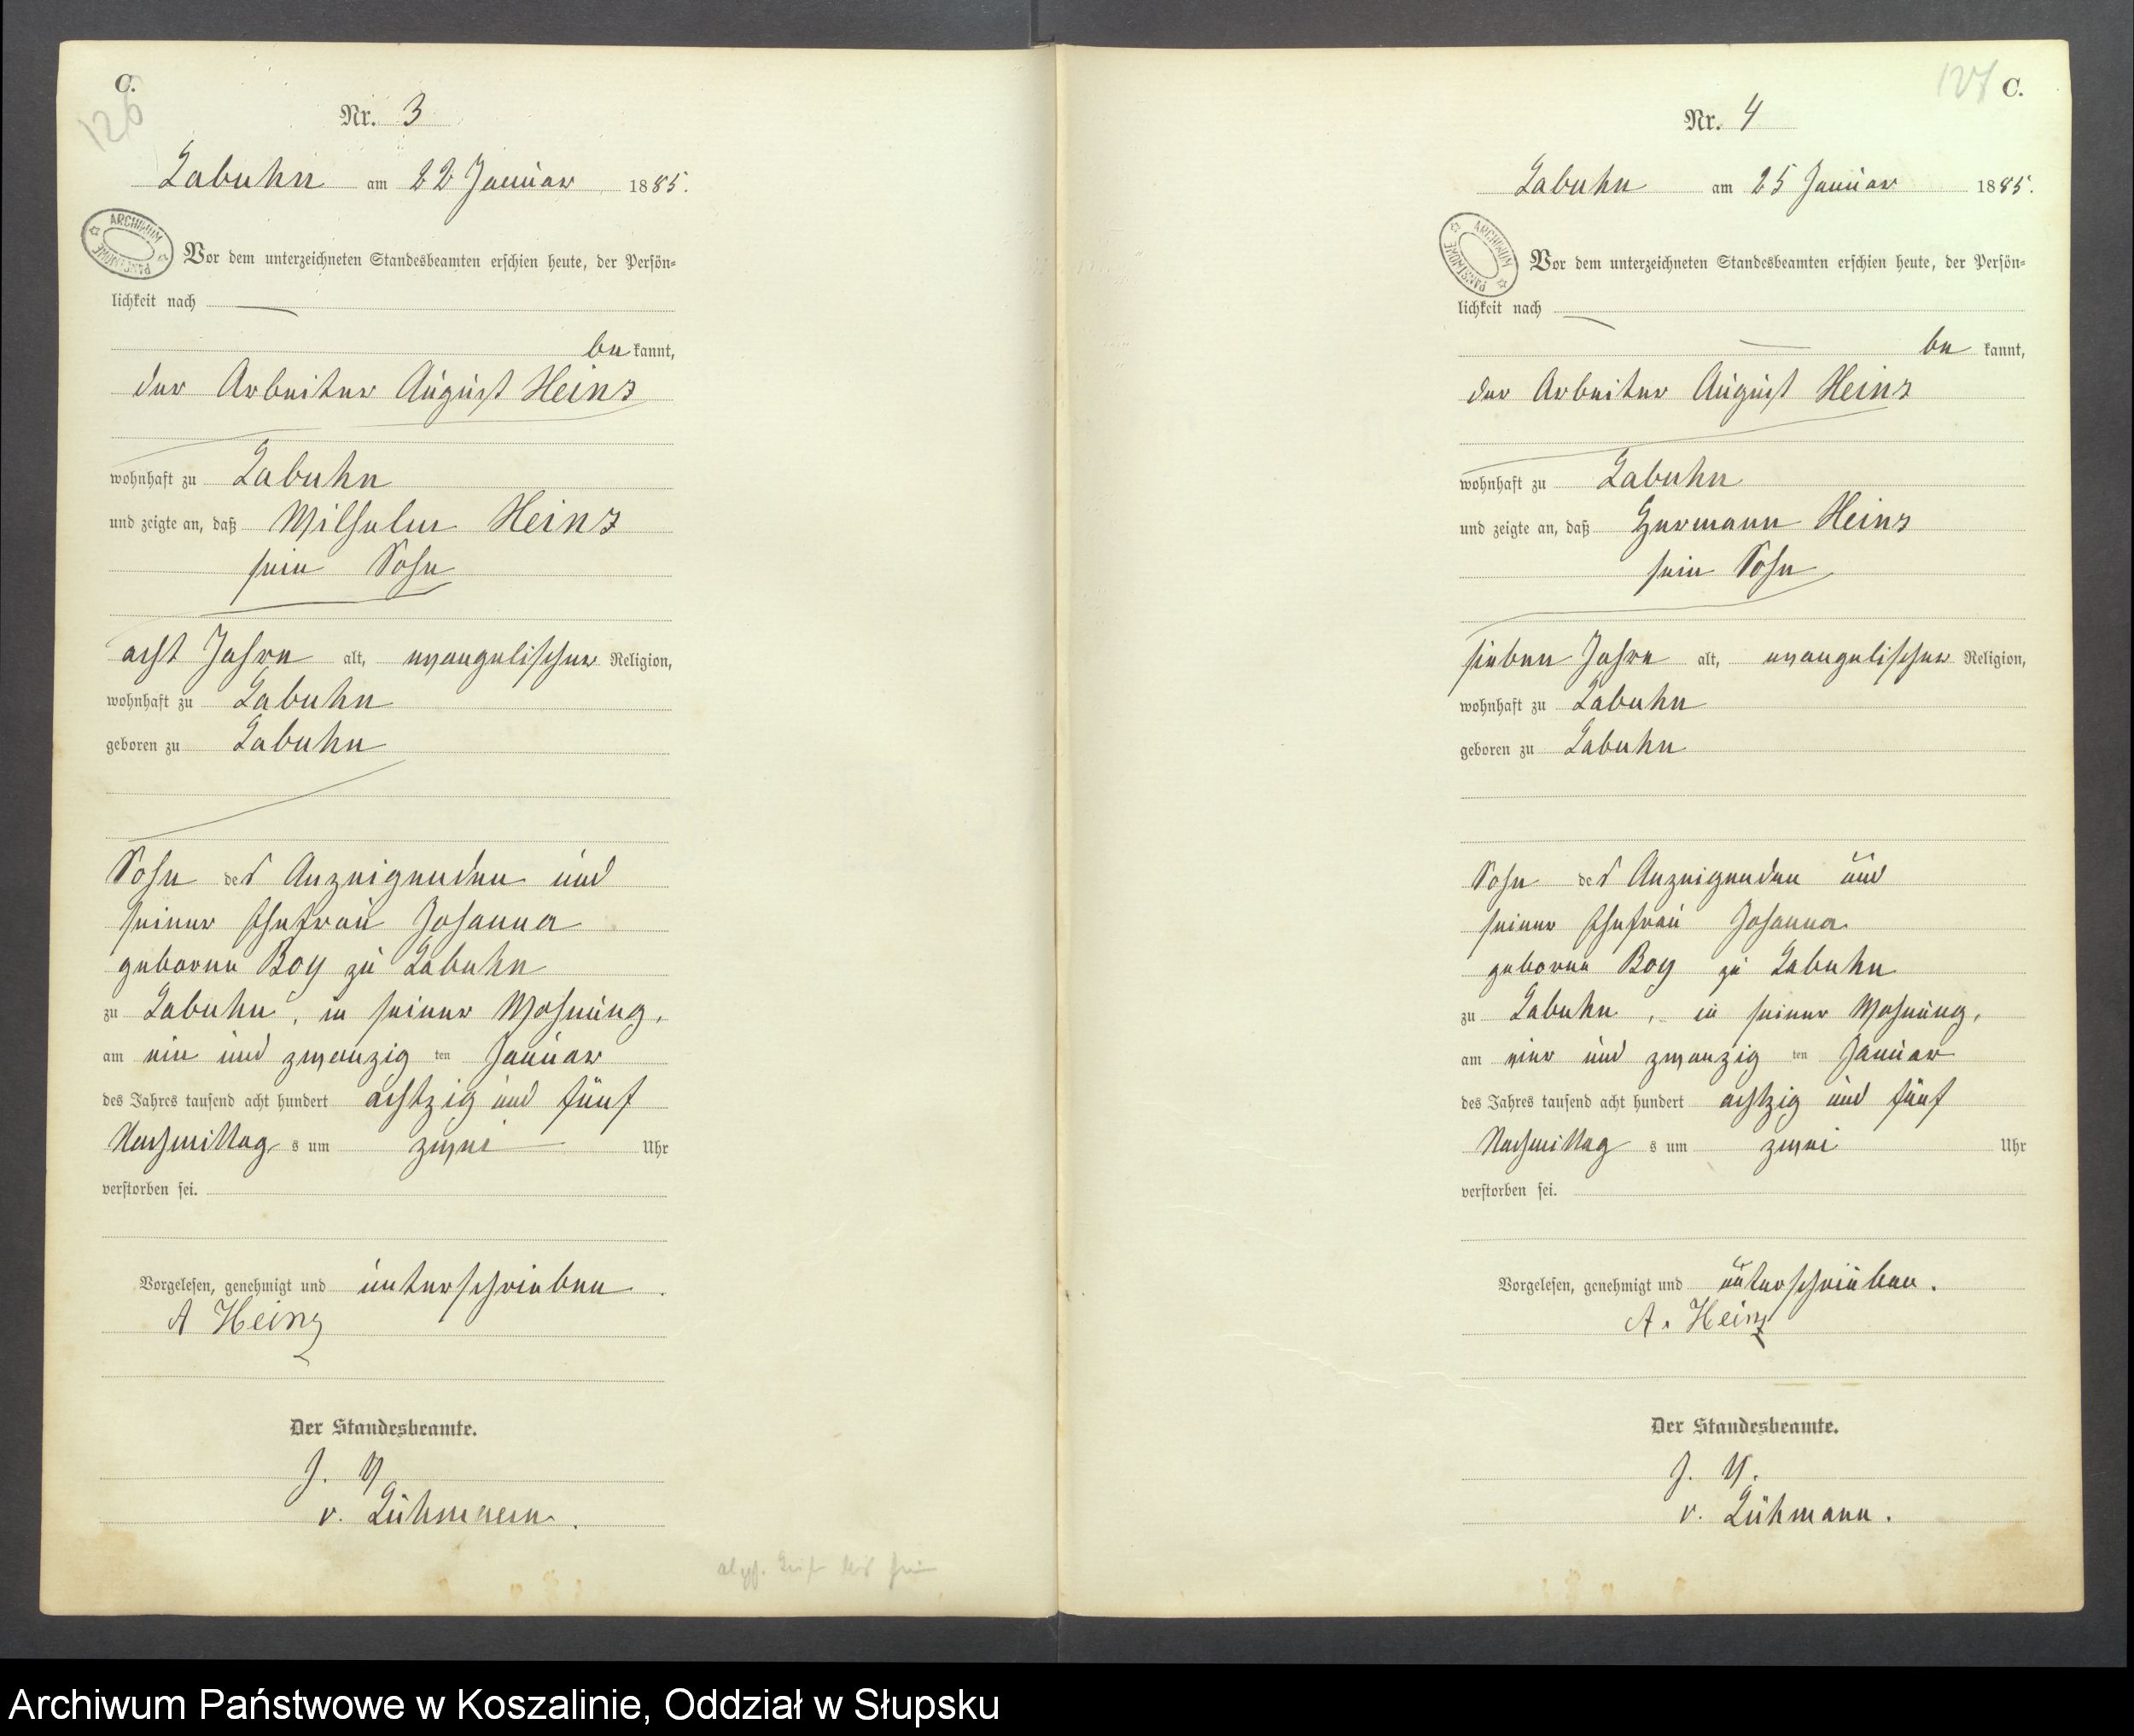 C.
126
Nr. 3
Labuhn am 22 Januar 1885.
ARCHIWUM PAŃSTWOWE
Vor dem unterzeichneten Standesbeamten erschien heute, der Persön-
lichkeit nach
be kannt,
der Arbeiter August Heinz
wohnhaft zu Labuhn
und zeigte an, daß Wilhelm Heinz
sein Sohn
acht Jahre alt, evangelischer Religion,
wohnhaft zu Labuhn
geboren zu Labuhn
Sohn des Anzeigenden und
seiner Ehefrau Johanna
geborne Boy zu Labuhn
zu Labuhn, in seiner Wohnung,
am ein und zwanzig ten Januar
des Jahres tausend acht hundert achtzig und fünf
Nachmittag s um zwei Uhr
verstorben sei.
Vorgelesen, genehmigt und unterschrieben.
A Heinz
Der Standesbeamte.
J. V
v. Lühmann.
127 C.
Nr. 4
Labuhn am 25 Januar 1885.
ARCHIWUM PAŃSTWOWE
Vor dem unterzeichneten Standesbeamten erschien heute, der Persön-
lichkeit nach
be kannt,
der Arbeiter August Heinz
wohnhaft zu Labuhn
und zeigte an, daß Hermann Heinz
sein Sohn
sieben Jahre alt, evangelischer Religion,
wohnhaft zu Labuhn
geboren zu Labuhn
Sohn des Anzeigenden und
seiner Ehefrau Johanna
geborne Boy zu Labuhn
zu Labuhn, in seiner Wohnung,
am vier und zwanzig ten Januar
des Jahres tausend acht hundert achtzig und fünf
Nachmittag s um zwei Uhr
verstorben sei.
Vorgelesen, genehmigt und unterschrieben.
A. Heinz
Der Standesbeamte.
J. V.
v. Lühmann.
Archiwum Państwowe w Koszalinie, Oddział w Słupsku